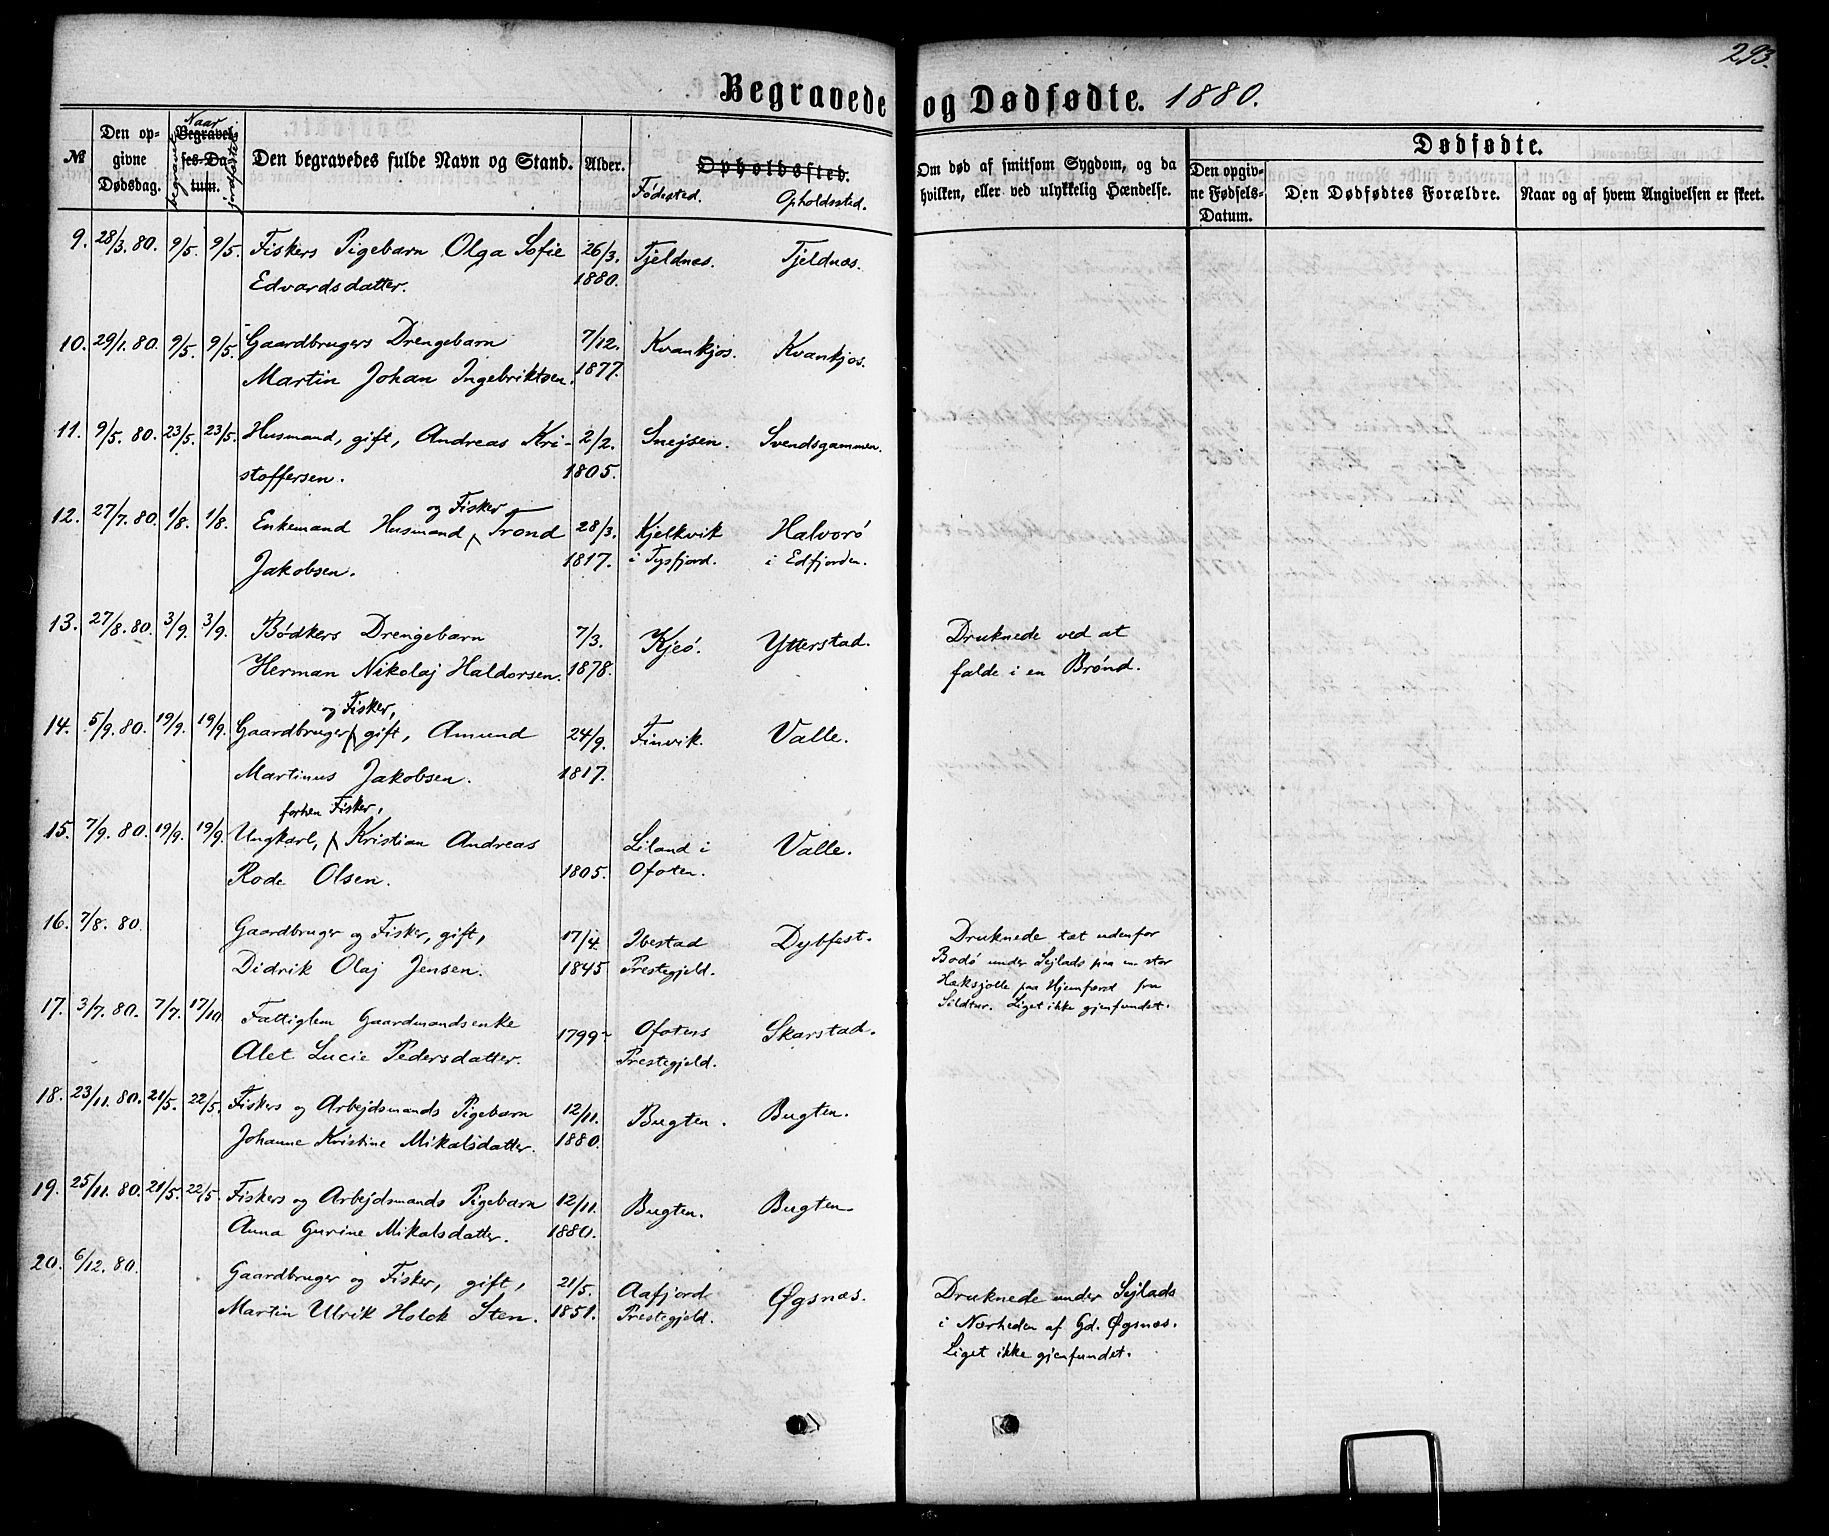 293.
Begravede og Dødfødte. 1880.
№
Den op-
givne
Dødsdag.
Naar
Begravel-
ses-Da-
tum.
begravet
jordfæstet
Den begravedes fulde Navn og Stand.
Alder.
Opholdssted.
Fødested. Opholdssted.
Om død af smitsom Sygdom, og da
hvilken, eller ved ulykkelig Hændelse.
Dødfødte.
Den opgiv-
ne Fødsels-
Datum.
Den Dødfødtes Forældre.
Naar og af hvem Angivelsen er skeet.
9. 28/3. 80. 9/5. 9/5. Fiskers Pigebarn Olga Sofie 26/3. Tjeldnæs. Tjeldnæs.
Edvardsdatter. 1880.
10. 29/1. 80. 9/5. 9/5. Gaardbrugers Drengebarn 7/12. Kvankjos. Kvankjos.
Martin Johan Ingebriktsen. 1877.
11. 9/5. 80. 23/5. 23/5. Husmand, gift, Andreas Kri- 2/2. Snejsen. Svendsgammen.
stoffersen. 1805.
og Fisker
12. 27/7. 80. 1/8. 1/8. Enkemand Husmand Trond 28/3. Kjelkvik Halvorø
Jakobsen. 1817. i Tysfjord. i Edfjorden.
13. 27/8. 80. 3/9. 3/9. Bødkers Drengebarn 7/3. Kjeø. Ytterstad. Druknede ved at
Herman Nikolaj Haldorsen. 1878. falde i en Brønd.
og Fisker,
14. 5/9. 80. 19/9. 19/9. Gaardbruger gift, Amund 24/9. Finvik. Valle.
Martinus Jakobsen. 1817.
forhen Fisker,
15. 7/9. 80. 19/9. 19/9. Ungkarl, Kristian Andreas Liland i Valle.
Rode Olsen. 1805. Ofoten.
16. 7/8. 80. Gaardbruger og Fisker, gift, 17/4. Ibestad Dybfest. Druknede tæt udenfor
Didrik Olaj Jensen. 1845 Prestegjeld. Bodø under Sejlads paa en stor
Hæksjolle paa Hjemfærd fra
Sildtur. Liget ikke gjenfundet.
17. 3/7. 80. 7/7. 17/10. Fattiglem Gaardmandsenke 1799 Ofotens Skarstad.
Alet Lucie Pedersdatter. Prestegjeld.
18. 23/11. 80. 21/5. 22/5. Fiskers og Arbejdsmands Pigebarn 12/11. Bugten. Bugten.
Johanne Kristine Mikalsdatter. 1880.
19. 25/11. 80. 21/5. 22/5. Fiskers og Arbejdsmands Pigebarn 12/11. Bugten. Bugten.
Anna Gurine Mikalsdatter. 1880.
20. 6/12. 80. Gaardbruger og Fisker, gift, 21/5. Aafjord Øgsnæs. Druknede under Sejlads
Martin Ulrik Holck Sten. 1851. Prestegjeld. i Nærheden af Gd. Øgsnæs.
Liget ikke gjenfundet.